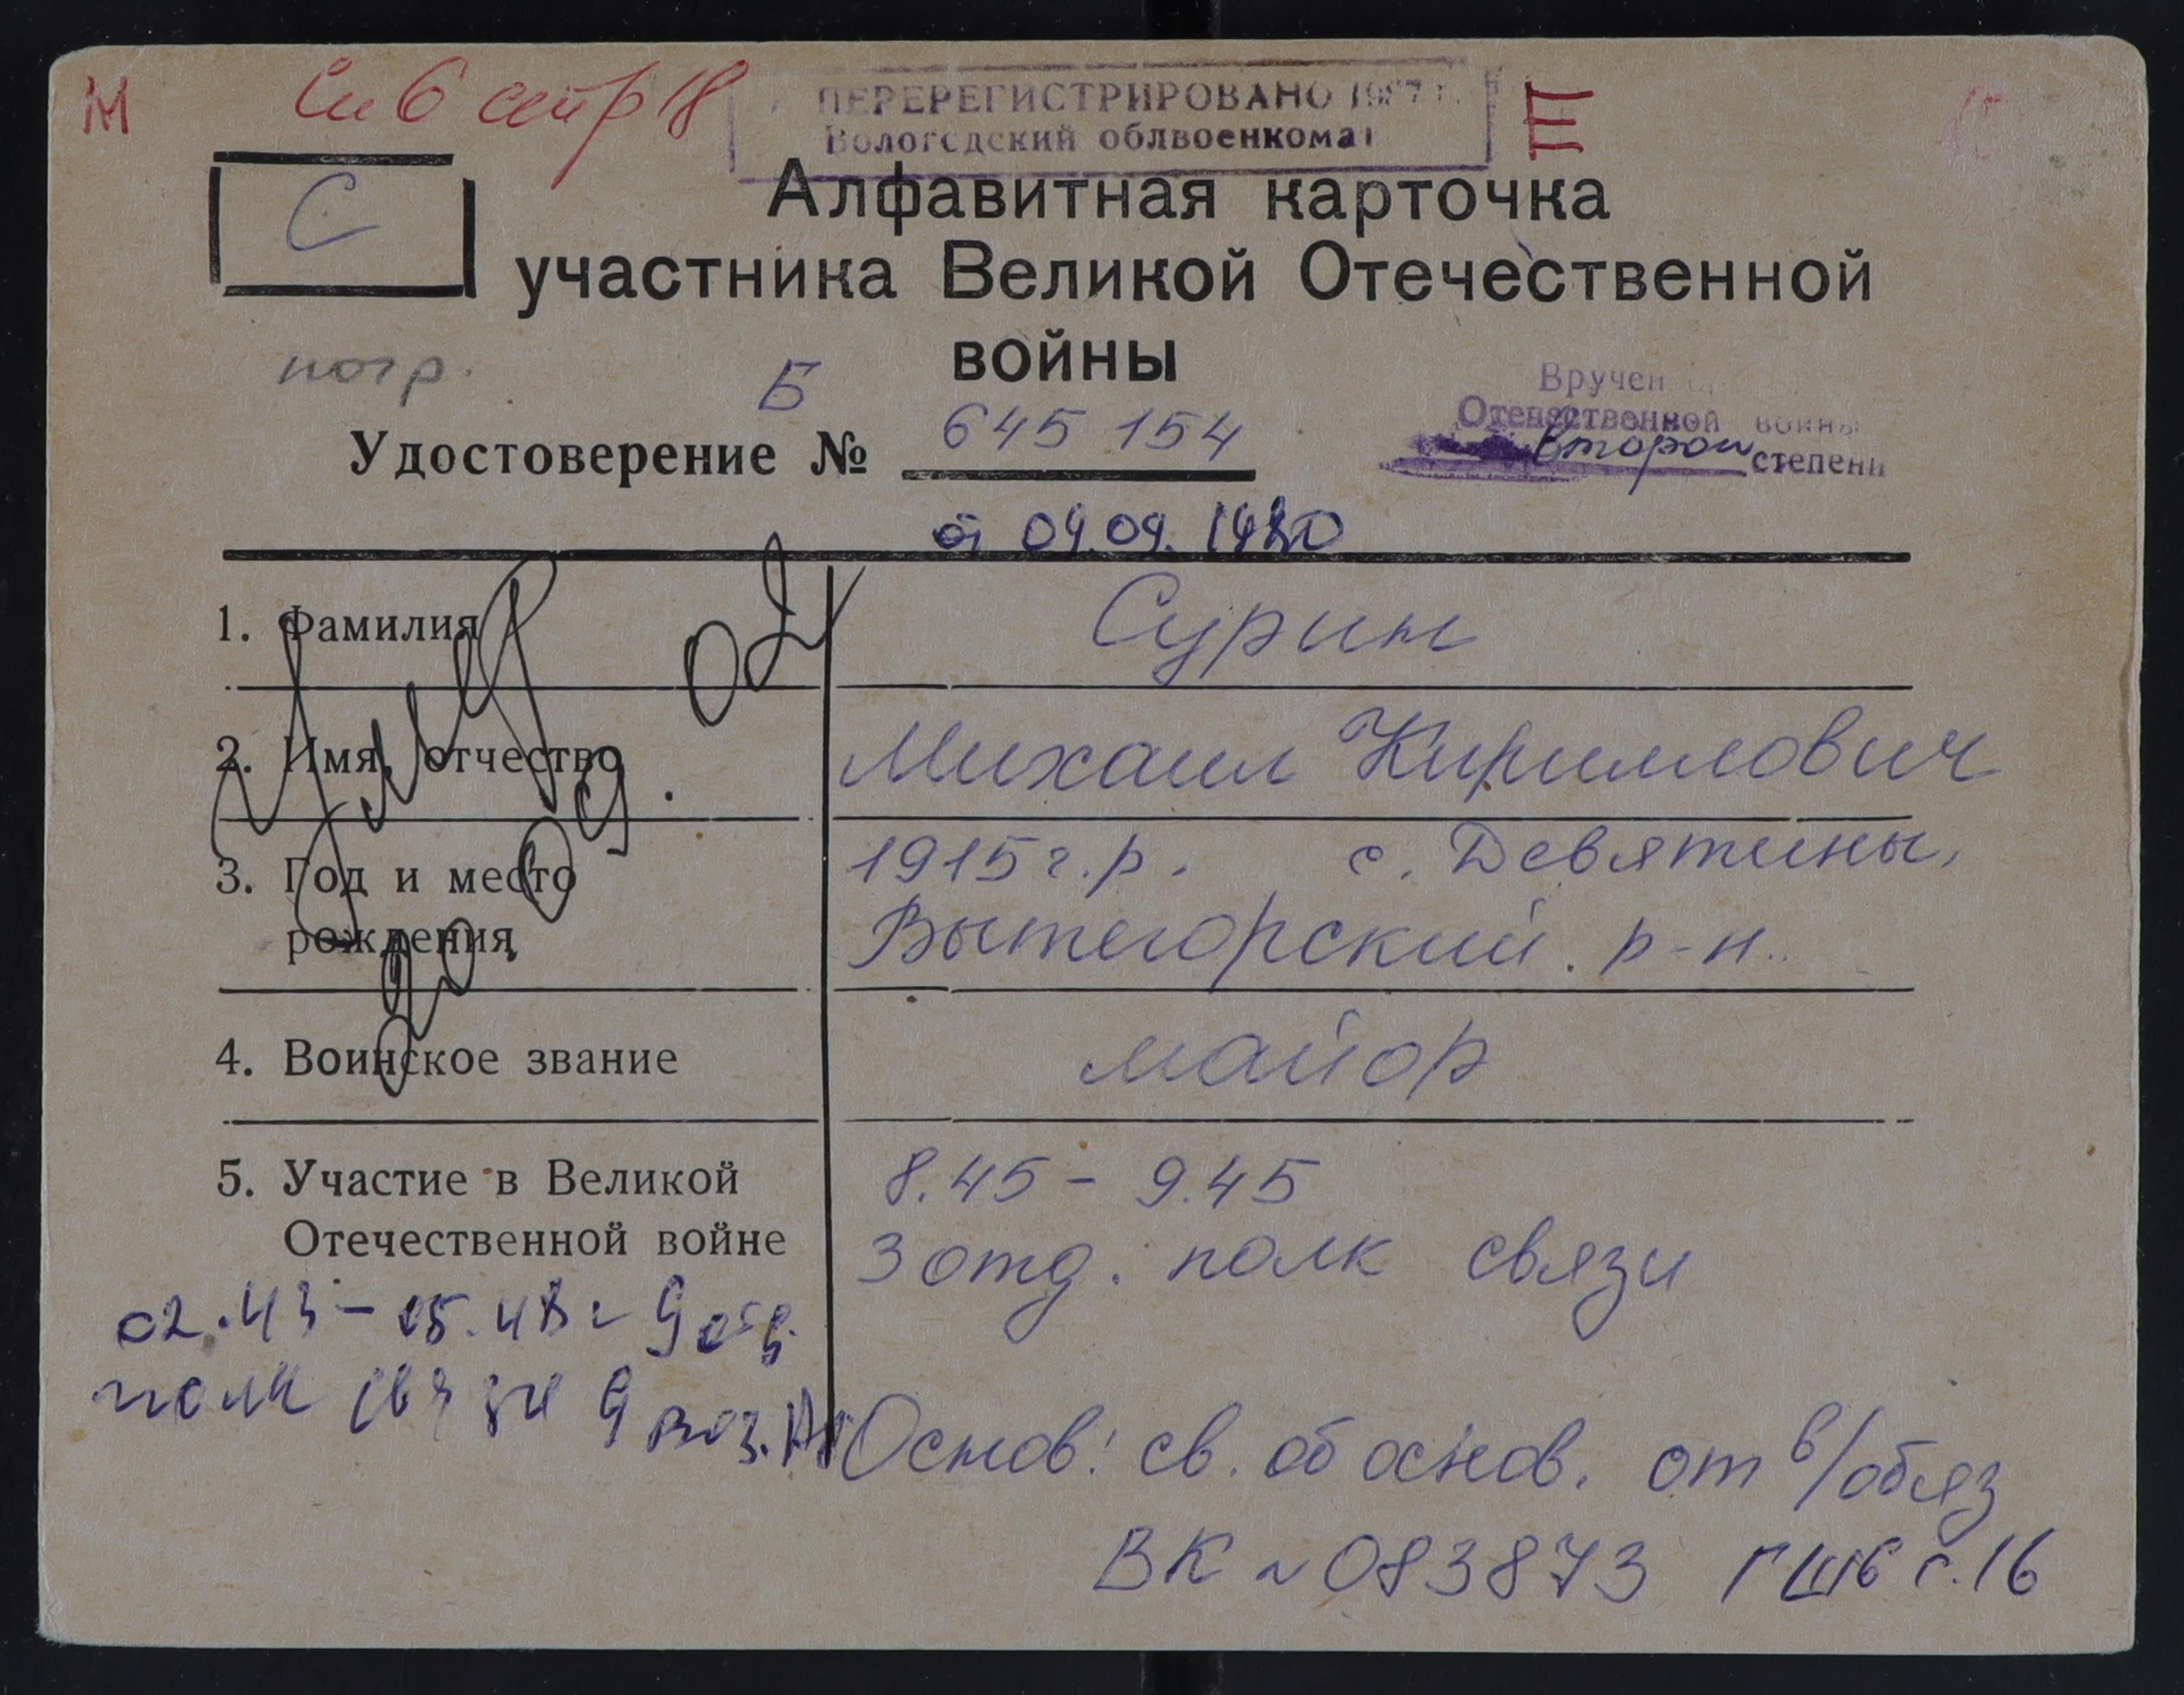 М
См 6 стр 18
ПЕРЕРЕГИСТРИРОВАНО 1987 г.
Вологодский облвоенкомат
III
С
Алфавитная карточка
участника Великой Отечественной
войны
погр.
Б
Удостоверение № 645 154
от 09.09.1980
Вручен
Отечественной войны
второй степени
1. Фамилия
Сурин
2. Имя, отчество
Михаил Кириллович
3. Год и место
рождения
1915 г.р. с. Девятины,
Вытегорский р-н.
4. Воинское звание
майор
5. Участие в Великой
Отечественной войне
8.45 - 9.45
3 отд. полк связи
02.43 - 05.43 г 9 отд
полк связи 9 воз.
Основ: св. об основ. от в/обяз
ВК № 083873 ГШ6 с.16
Умер